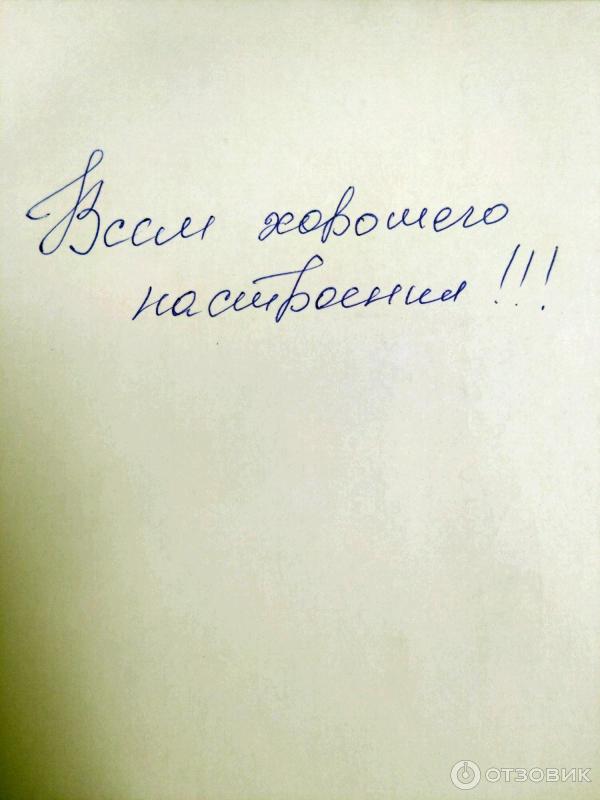 Всем хорошего
настроения!!!
ОТЗОВИК